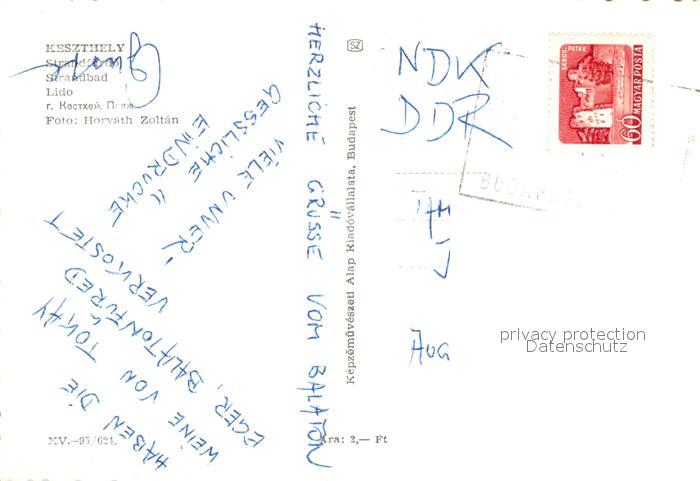 KESZTHELY
Strandfürdő
Strandbad
Lido
г. Кестхей, Пляж
Foto: Horváth Zoltán
HERZLICHE GRÜSSE VOM BALATON
VIELE UNVER-
GESSLICHE
EINDRÜCKE
HABEN DIE
WEINE VON TOKAY
EGER, BALATONFÜRED
VERKOSTET
XV.—95/621.
Ára: 2,— Ft
SZ
Képzőművészeti Alap Kiadóvállalata, Budapest
NDK
DDR
AUG
SÁROS-PATAK
60 MAGYAR POSTA
BUDAPEST
privacy protection
Datenschutz